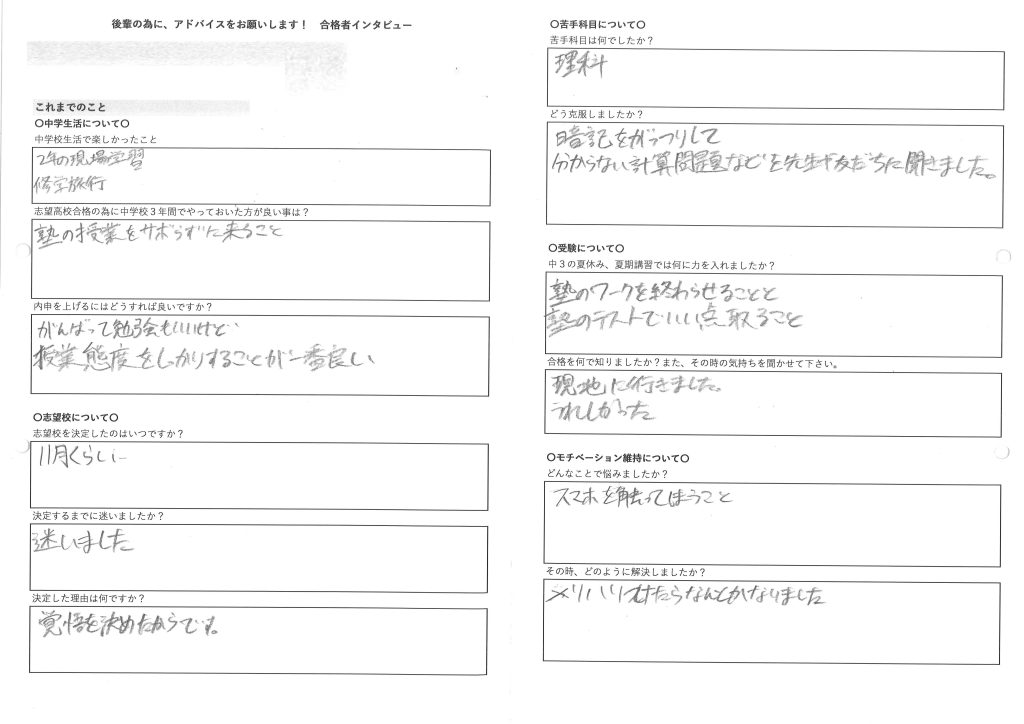 後輩の為に、アドバイスをお願いします！　合格者インタビュー
これまでのこと
〇中学生活について〇
中学校生活で楽しかったこと
2年の現場学習
修学旅行
志望高校合格の為に中学校３年間でやっておいた方が良い事は？
塾の授業をサボらずに来ること
内申を上げるにはどうすれば良いですか？
がんばって勉強会もいいけど…
授業態度をしっかりすることが一番良い
〇志望校について〇
志望校を決定したのはいつですか？
11月くらい
決定するまでに迷いましたか？
迷いました
決定した理由は何ですか？
覚悟を決めたからです。
〇苦手科目について〇
苦手科目は何でしたか？
理科
どう克服しましたか？
暗記をがっつりして
分からない計算問題などを先生や友だちに聞きました。
〇受験について〇
中３の夏休み、夏期講習では何に力を入れましたか？
塾のワークを終わらせることと
塾のテストでいい点取ること
合格を何で知りましたか？また、その時の気持ちを聞かせて下さい。
現地に行きました。
うれしかった
〇モチベーション維持について〇
どんなことで悩みましたか？
スマホを触ってしまうこと
その時、どのように解決しましたか？
メリハリつけたらなんとかなりました